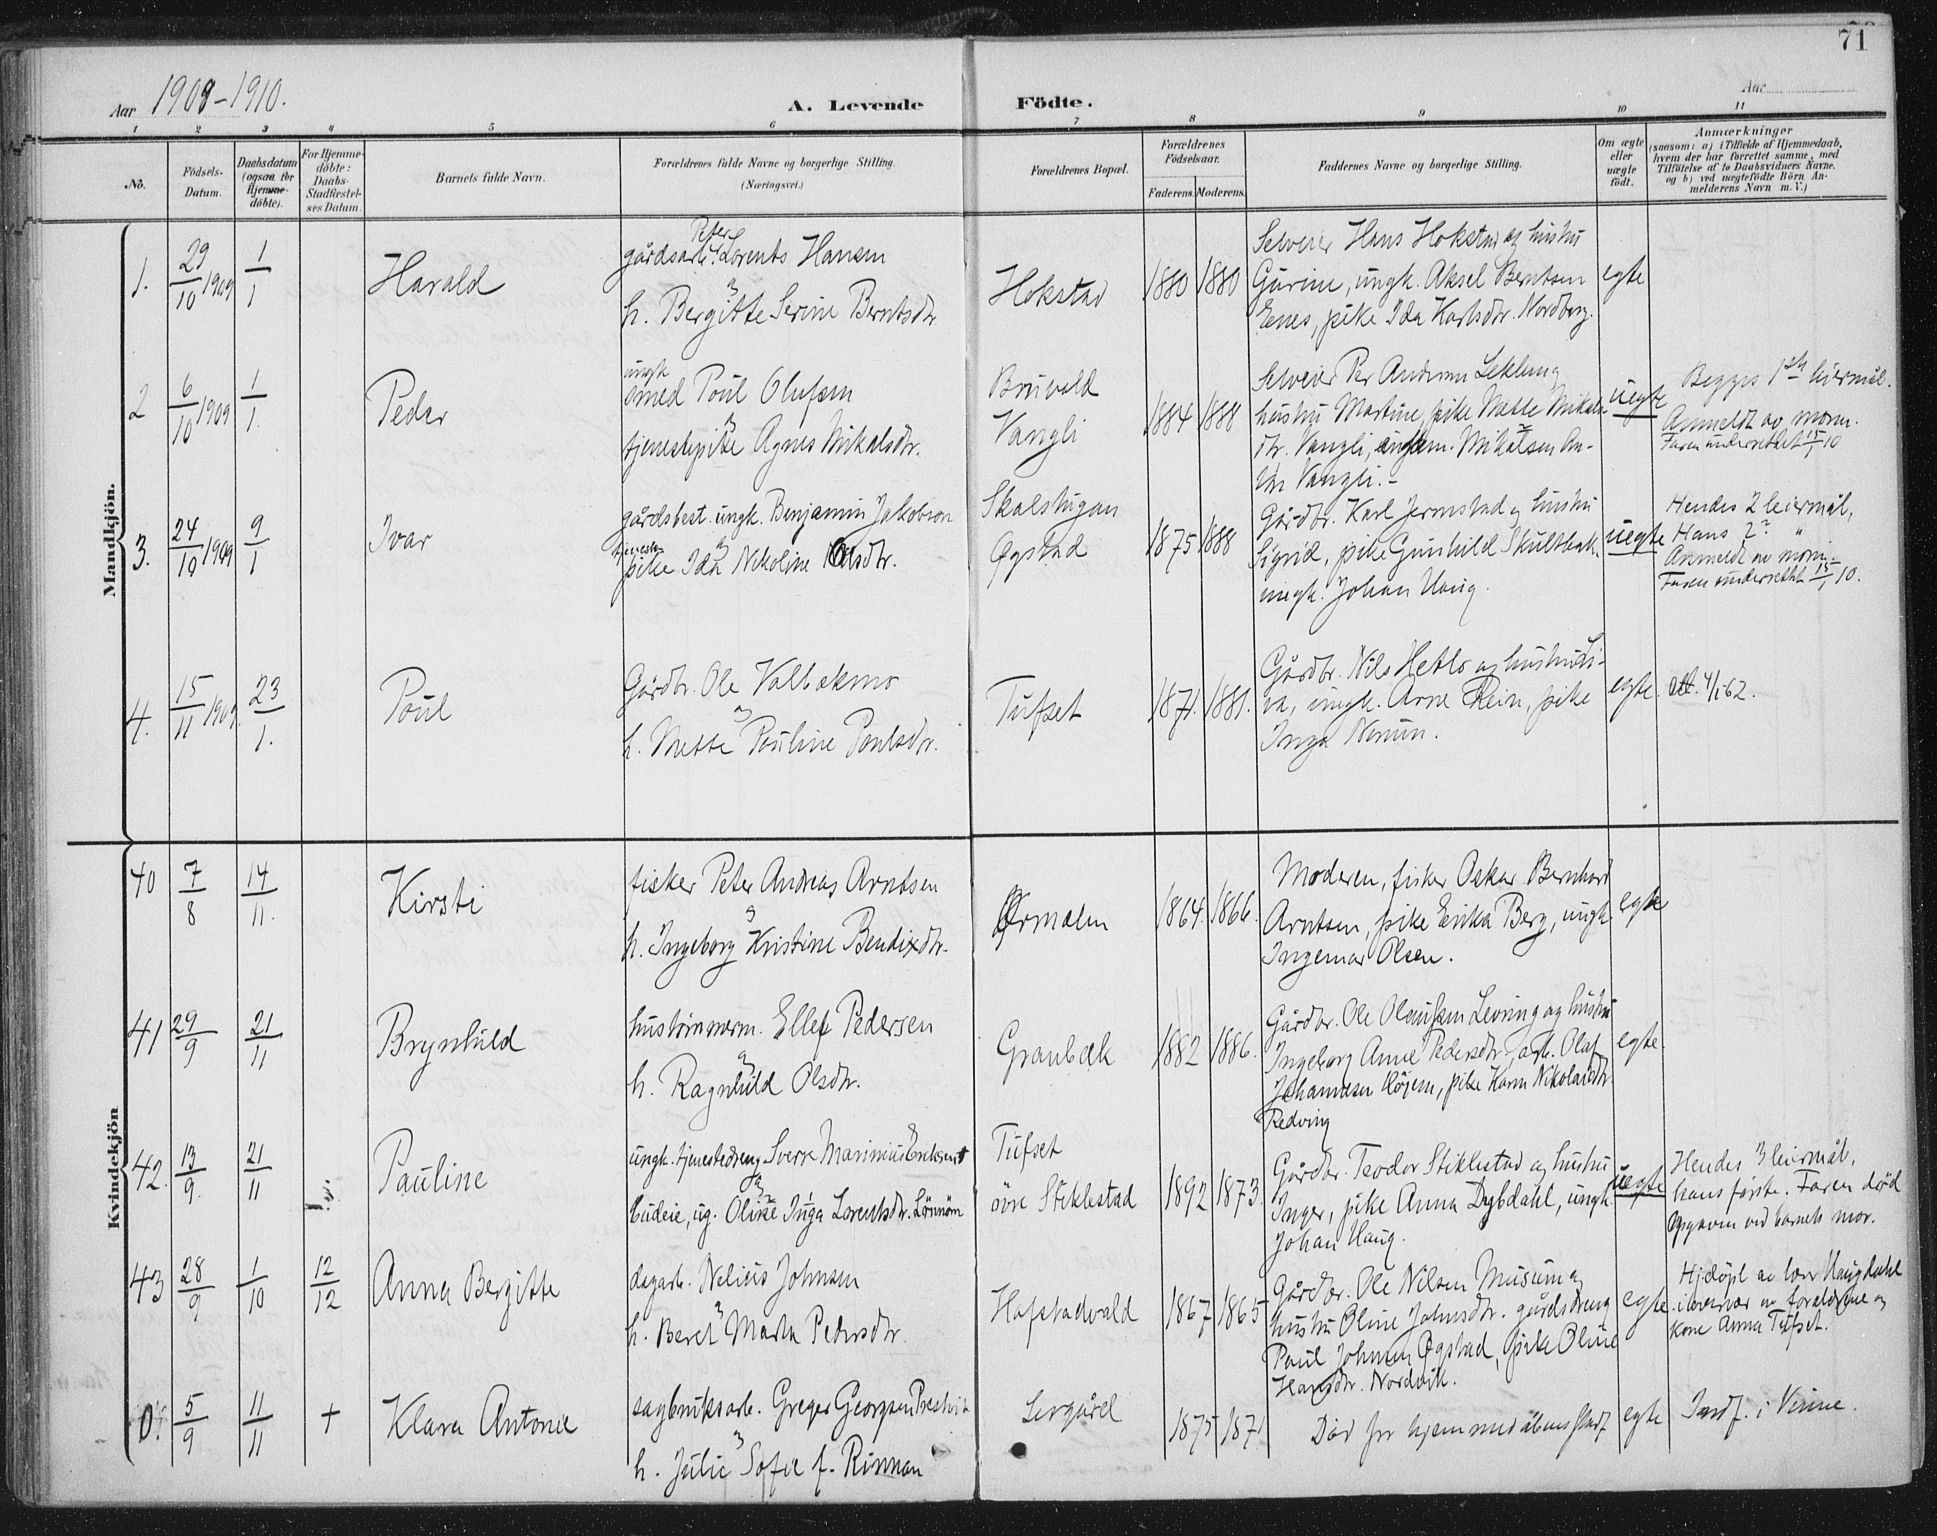 71
Aar 1909-1910.
A. Levende Födte.
Aar
1 2 3 4 5 6 7 8 9 10 11
No.
Födsels-
Datum.
Daabsdatum
(ogsaa for
Hjemme-
döbte).
For Hjemme-
döbte:
Daabs-
Stadfæstel-
ses Datum.
Barnets fulde Navn.
Forældrenes fulde Navne og borgerlige Stilling.
(Næringsvei.)
Forældrenes Bopæl.
Forældrenes
Födselsaar.
Faderens. Moderens.
Faddernes Navne og borgerlige Stilling.
Om ægte
eller
uægte
födt.
Anmærkninger
(saasom: a) i Tilfælde af Hjemmedaab,
hvem der har forrettet samme, med
Tilföielse af to Daabsvidners Navne,
og b) ved uægtefödte Börn An-
melderens Navn m. V.)
Mandkjön.
1. 29/10 1909 1/1 Harald
Peter
gårdsarb. Lorents Hansen
h. Bergitte Serine Berntsdtr.
Hokstad 1880 1880
Selveier Hans Hokstad og hustru
Gurine, ungk. Aksel Berntsen
Enes, pike Ida Karlsdtr. Nordberg.
egte
2 6/10 1909 1/1. Peder
ungk
smed Poul Olufsen
tjenestepike Agnes Mikalsdtr.
Bruvold
Vangli
1884 1888
Selveier Per Andersen Leklung
hustru Martine, pike Mette Mikals-
dtr. Vangli, Mikalsen An-
Vangli.-
uegte
Begges 1ste leiermål.
Anmeldt av moren.
Faren underrettet 15/1 10
3. 24/10 1909 9/1 Ivar
gårdsbest. ungk. Benjamin Jakobson
tjeneste
pike Ida Nikoline Olsdtr.
Skalstugan
Øgstad
1875 1888
Gårdbr. Karl Jermstad og hustru
Sigrid, pike Gunhild Skultbak.
ungk. Johan Haug.
uegte
Hendes 2 leiermål,
Hans 2? "
Anmeldt av moren.
Faren underrettet 15/1 10.
4. 15/11 1909 23/1. Poul
Gårdbr. Ole Valbekmo
h. Mette Pouline Poulsdtr.
Tufset 1871. 1881.
Gårdbr. Nils Hetlo og hustru Li-
va, ungk. Arne Rein, pike
Inga Ninun.
egte. att. 4/1-62.
Kvindekjön
40 7/8 14/11. Kirsti
fisker Peter Andreas Arntsen
h. Ingeborg Kristine Bendixdtr.
Ørmelen 1864. 1866.
Moderen, fisker Oskar Bernhard
Arntsen, pike Erika Berg, ungk.
Ingemar Olsen.
egte
41 29/9 21/11 Brynhild
hustømmerm. Ellef Pedersen
h. Ragnhild Olsdtr.
Graubæk 1882 1886.
Gårdbr. Ole Olaussen Levring og hustru
Ingeborg Anne Pedersdtr, arb. Olaf
Johannesen Højem, pike Karen Nikolaisdtr
Redving
egte.
42. 13/9. 21/11 Pauline
ungk. tjenestedreng Sverre Marinius Eriksen
budeie, ug. Oline Inga Lorentsdtr. Lønnem
Tufset
øvre Stiklestad
1892 1873.
Gårdbr. Teodor Stiklestad og hustru
Inger, pike Anna Dybdahl, ungk.
Johan Haug.
uegte
Hendes 3 leiermål,
hans første. Faren død
Opgaven ved barnets mor.
43 28/9 1/10 12/12 Anna Bergitte
dagarb. Nelius Johnsen
h. Beret Marta Pedersdtr.
Hofstadvald 1867 1865
Gårdbr. Ole Nilsen Musum og
hustru Oline Johnsdtr. gårdsdreng
Paul Johnsen Øgstad, pike Oline
Hansdtr. Nordvik.
egte.
Hjdøpt av lær Haugdahl
i nærvær av forældrene og
kone Anna Tufset.
0. 5/9 11/11 + Klara Antonie
sagbruksarb. Greger Georgsen Prestvik
h. Julie Sofie f. Rinnan
Lergård 1875 1871
Død før hjemmedåbens stadf
egte Indf. i Vinne.